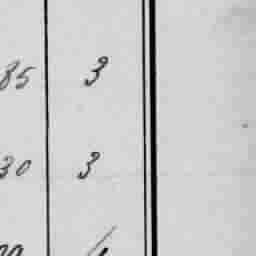 85 3
30 3